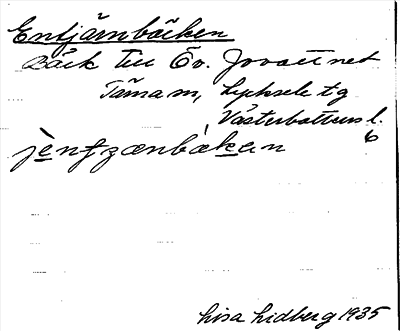 Entjärnbäcken
Bäck till Öv. Jovattnet
Tärna sn, Lycksele tg
Västerbottens l.
6
Lisa Lidberg 1935